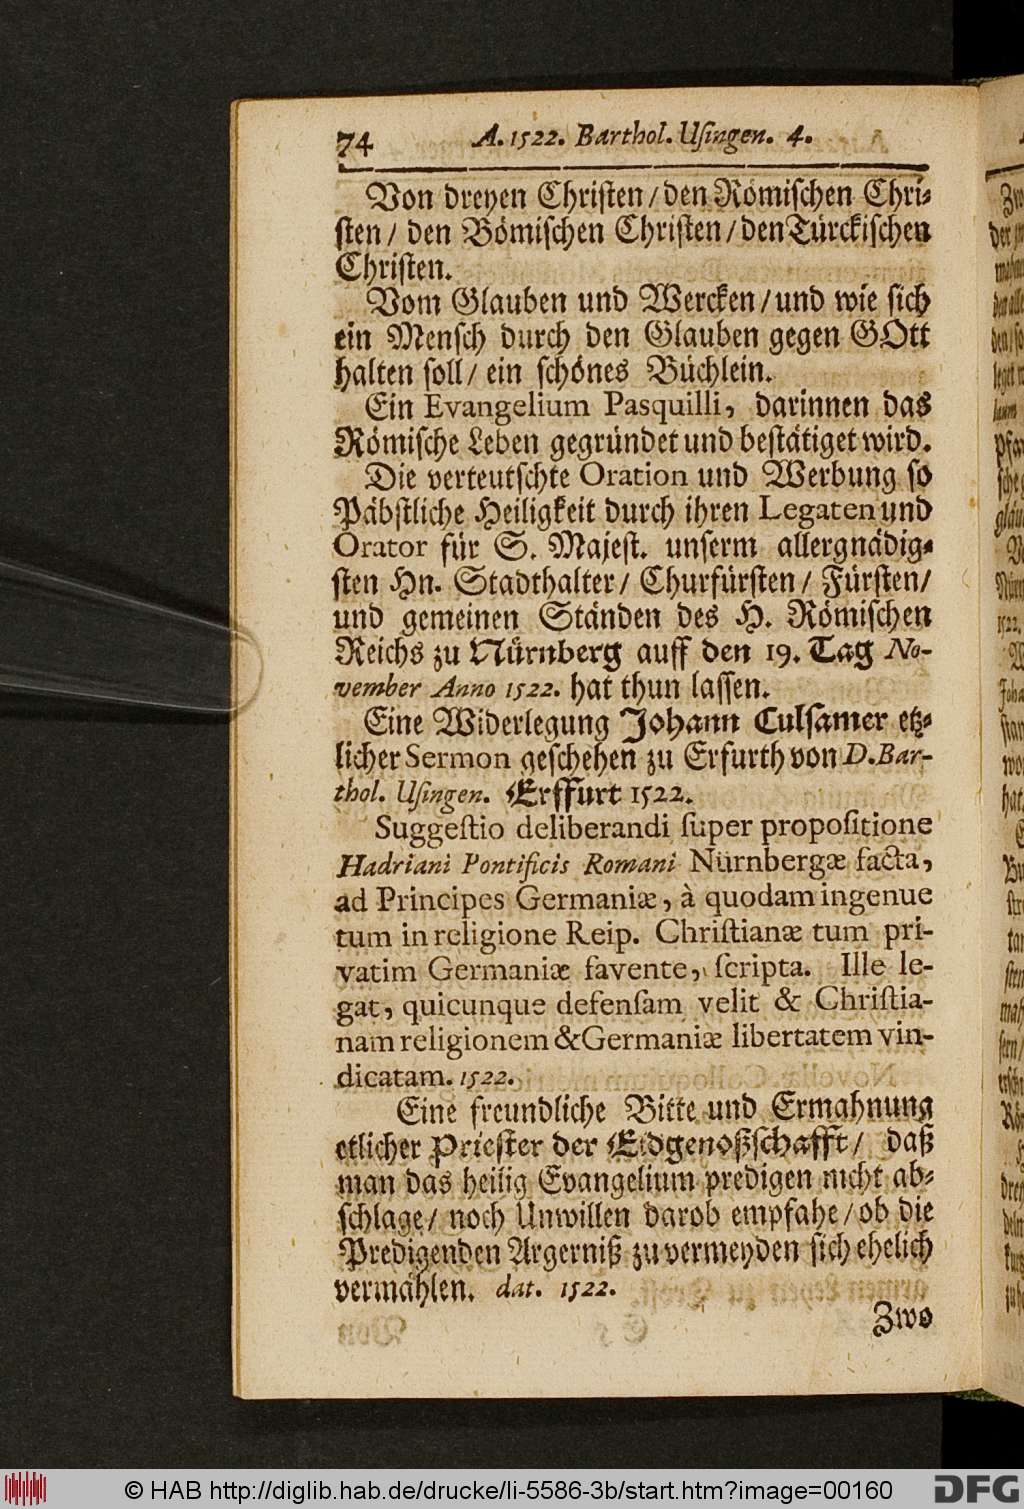 74 A. 1522. Barthol. Uſingen. 4.
Von dreyen Chriſten / den Römiſchen Chri⸗
ſten / den Bömiſchen Chriſten / den Türckiſchen
Chriſten.
Vom Glauben und Wercken / und wie ſich
ein Menſch durch den Glauben gegen GOtt
halten ſoll / ein ſchönes Büchlein.
Ein Evangelium Pasquilli, darinnen das
Römiſche Leben gegründet und beſtätiget wird.
Die verteutſchte Oration und Werbung ſo
Päbſtliche Heiligkeit durch ihren Legaten und
Orator für S. Majeſt. unſerm allergnädig⸗
ſten Hn. Stadthalter / Churfürſten / Fürſten /
und gemeinen Ständen des H. Römiſchen
Reichs zu Nürnberg auff den 19. Tag No-
vember Anno 1522. hat thun laſſen.
Eine Widerlegung Johann Culſamer etz⸗
licher Sermon geſchehen zu Erfurth von D. Bar-
thol. Uſingen. Erffurt 1522.
Suggeſtio deliberandi ſuper propoſitione
Hadriani Pontificis Romani Nürnbergæ facta,
ad Principes Germaniæ, à quodam ingenue
tum in religione Reip. Chriſtianæ tum pri-
vatim Germaniæ favente, ſcripta. Ille le-
gat, quicunque defenſam velit & Chriſtia-
nam religionem & Germaniæ libertatem vin-
dicatam. 1522.
Eine freundliche Bitte und Ermahnung
etlicher Prieſter der Eidgenoßſchafft / daß
man das heilig Evangelium predigen nicht ab⸗
ſchlage / noch Unwillen darob empfahe / ob die
Predigenden Argerniß zu vermeyden ſich ehelich
vermählen. dat. 1522.
Zwo
© HAB http://diglib.hab.de/drucke/li-5586-3b/start.htm?image=00160
DFG